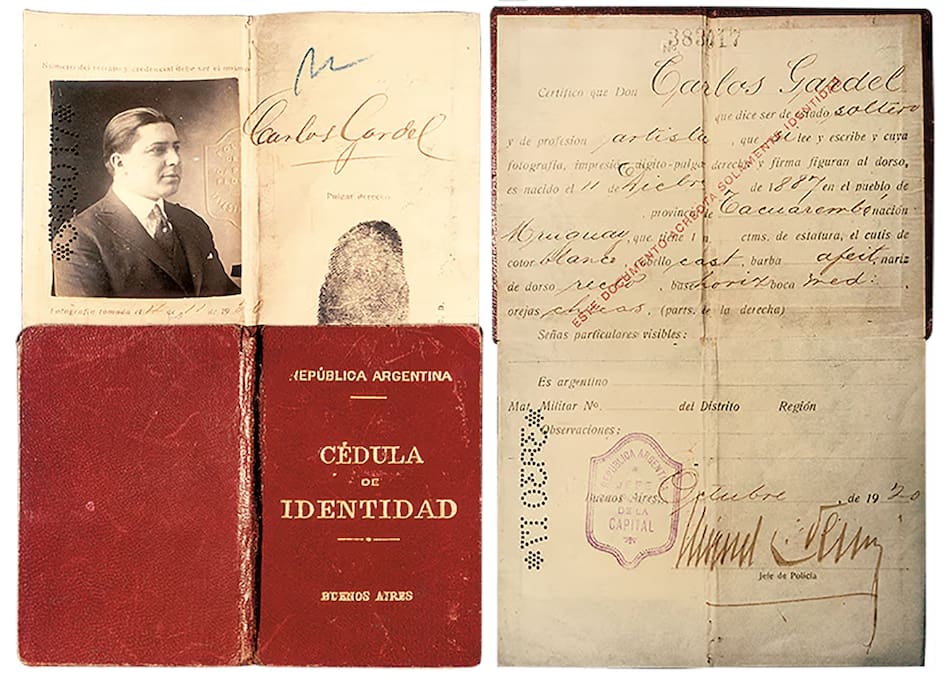 Número del retrato y credencial debe ser el mismo
Carlos Gardel
Pulgar derecho
Fotografía tomada el 4 de 11 de 1920
REPÚBLICA ARGENTINA
CÉDULA
DE
IDENTIDAD
BUENOS AIRES
No. 383017
Certifico que Don Carlos Gardel
que dice ser de estado soltero
y de profesión artista, que si lee y escribe y cuya
fotografía, impresión dígito-pulgar derecha y firma figuran al dorso,
es nacido el 11 de Dicbre de 1887 en el pueblo de
, provincia de Tacuarembó nación
Uruguay, que tiene 1 m ctms. de estatura, el cutis de
color blanco, cabello cast, barba afeit, nariz
de dorso recto, base horiz boca med:,
orejas chicas, (parts. de la derecha)
ESTE DOCUMENTO ACREDITA SOLAMENTE IDENTIDAD
Señas particulares visibles:
Es argentino
Mat. Militar No. del Distrito Región
Observaciones:
REPÚBLICA ARGENTI
JEFE
DE LA
CAPITAL
Buenos Aires, Octubre de 1920
Jefe de Policía